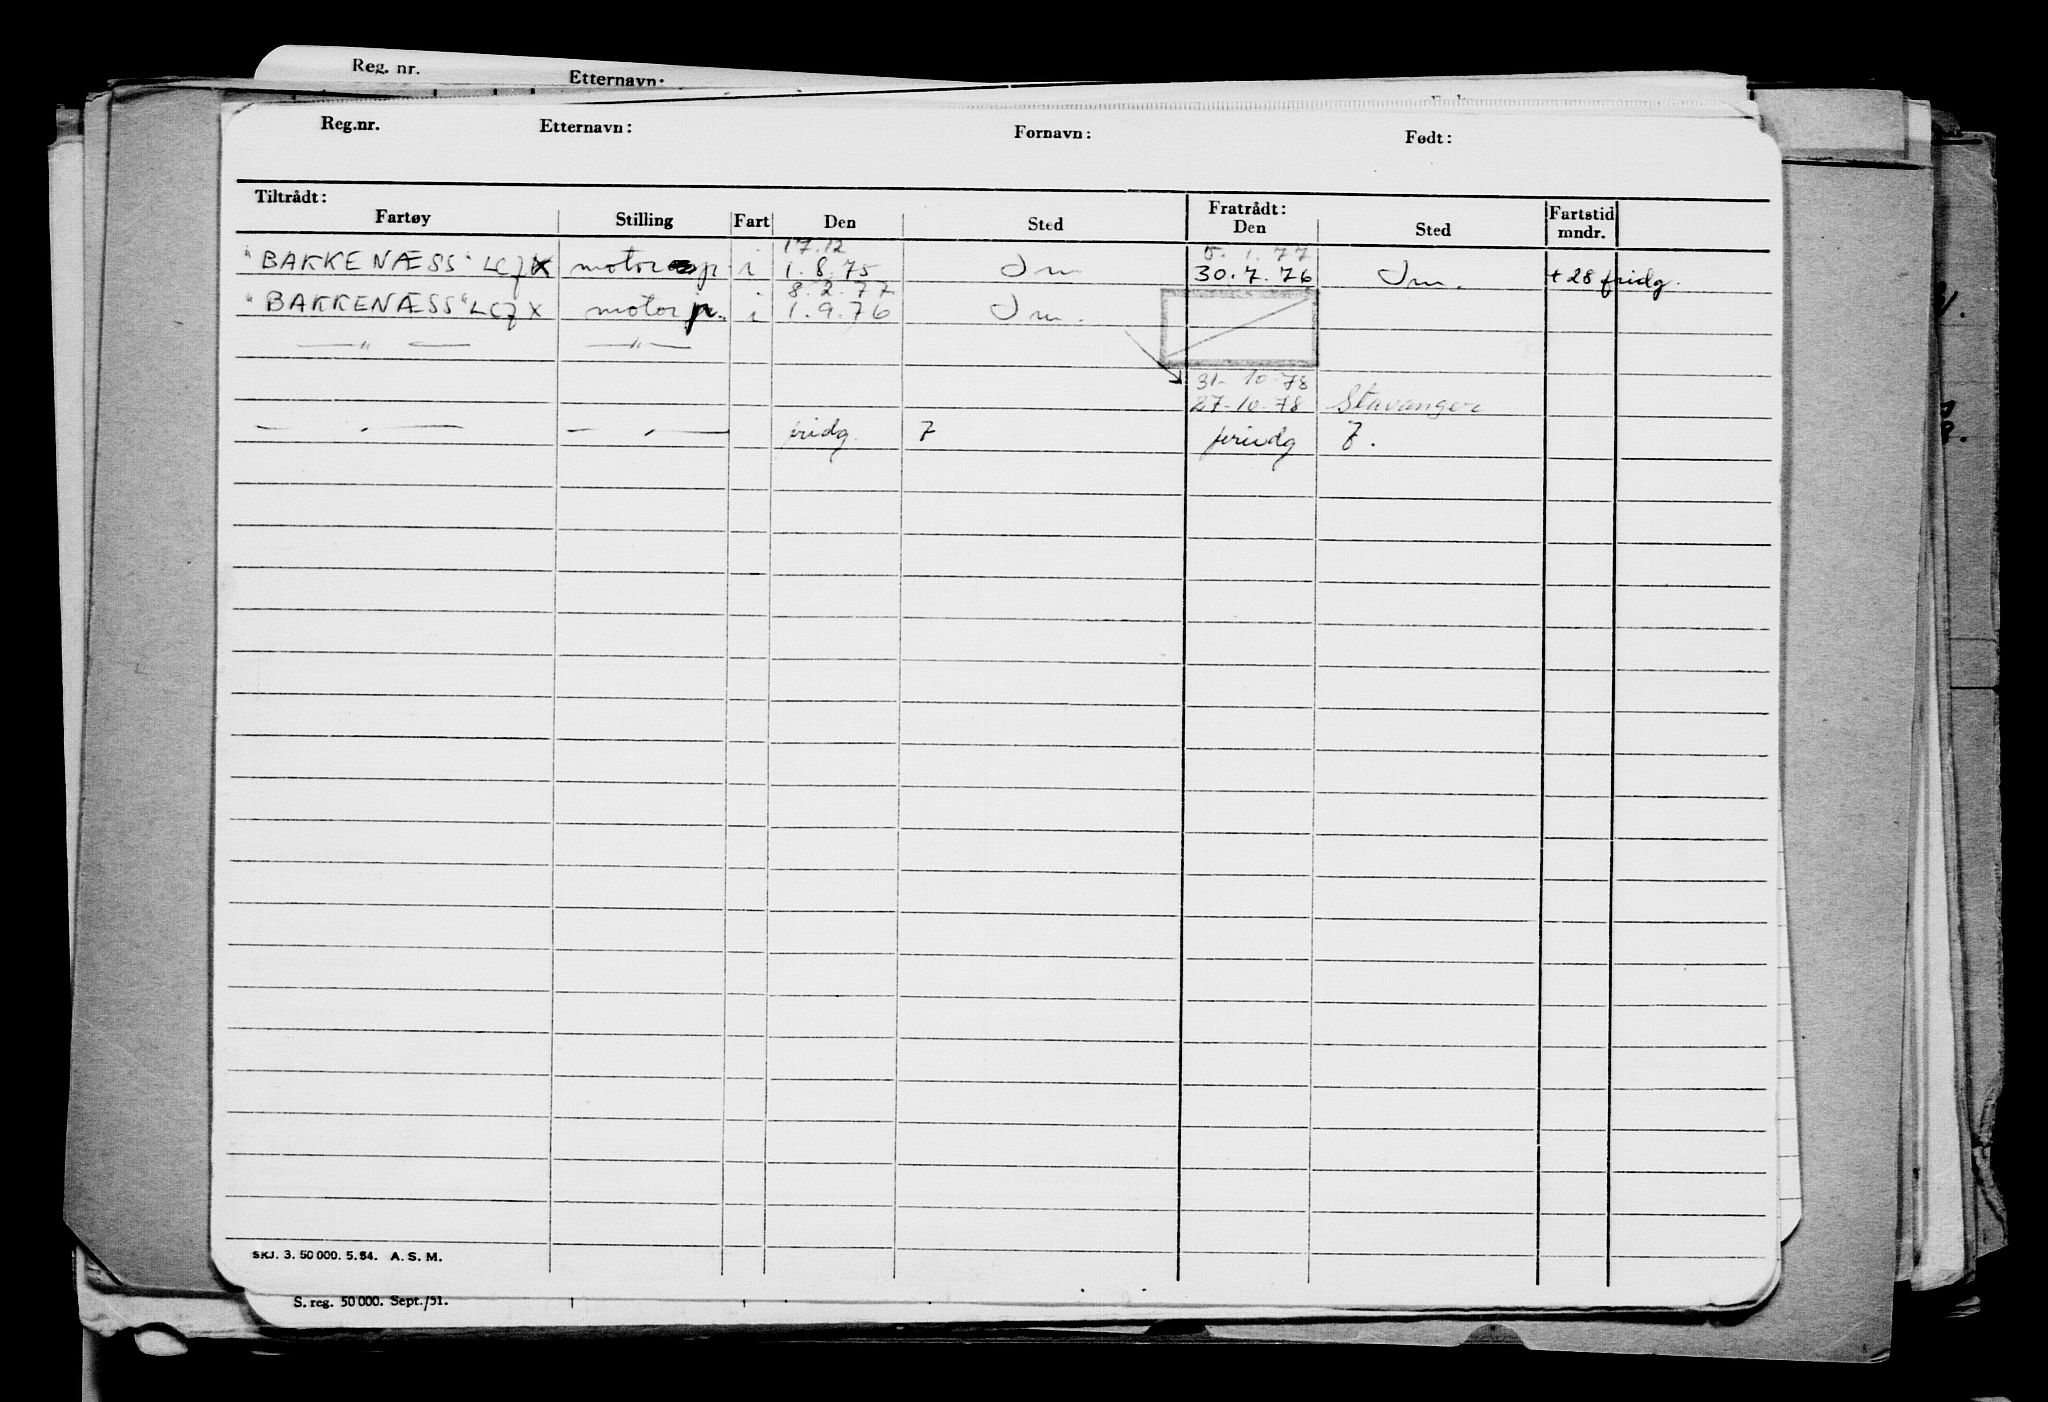 Reg. nr. Etternavn:
Reg.nr. Etternavn: Fornavn: Født:
Tiltrådt: Fratrådt: Fartstid
Fartøy Stilling Fart Den Sted Den Sted mndr.
17.12 5.1.77
"BAKKENÆSS" LCJX motor p. i 1.8.75 Im 30.7.76 Im. + 28 fridg.
8.2.77
"BAKKENÆSS" LCJX motor p. i 1.9.76 Im.
— " — — " —
31-10-78
27-10-78 Stavanger
— , — — , — fridg. 7 feriedg 7.
SKJ. 3. 50 000. 5. 54. A. S. M.
S. reg. 50 000. Sept./51.